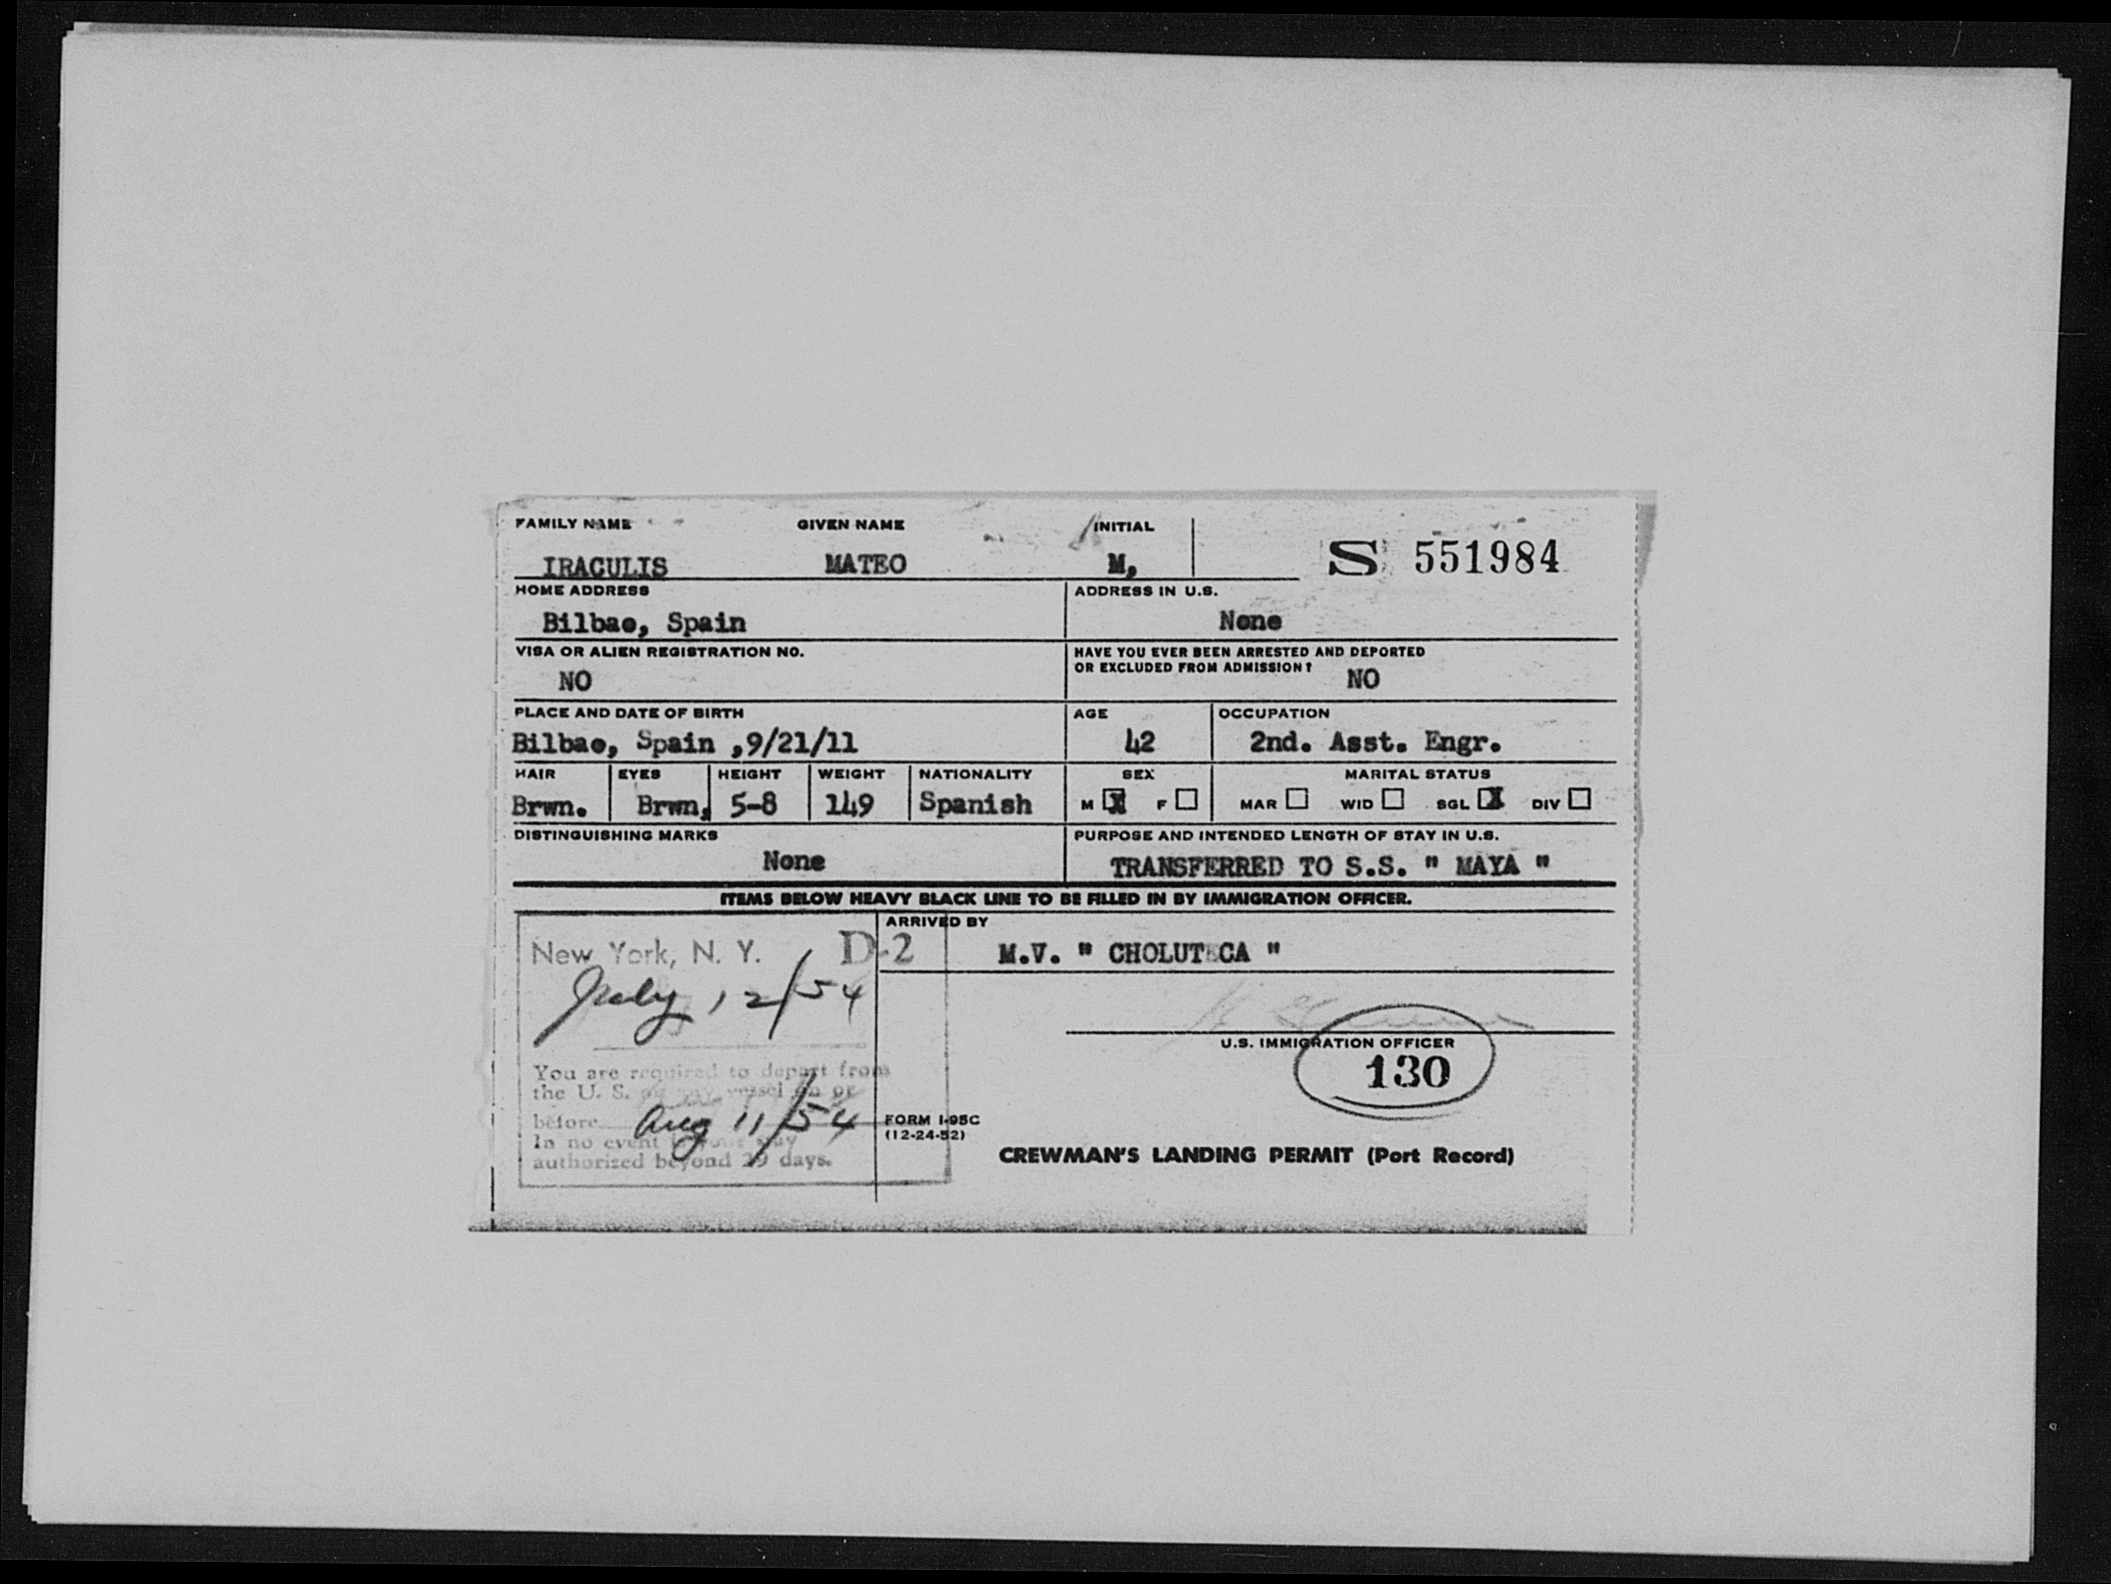 FAMILY NAME GIVEN NAME INITIAL
IRACULIS MATEO M, S 551984
HOME ADDRESS ADDRESS IN U.S.
Bilbao, Spain None
VISA OR ALIEN REGISTRATION NO. HAVE YOU EVER BEEN ARRESTED AND DEPORTED
OR EXCLUDED FROM ADMISSION?
NO NO
PLACE AND DATE OF BIRTH AGE OCCUPATION
Bilbao, Spain ,9/21/11 42 2nd. Asst. Engr.
HAIR EYES HEIGHT WEIGHT NATIONALITY SEX MARITAL STATUS
Brwn. Brwn, 5-8 149 Spanish M X F MAR WID SGL X DIV
DISTINGUISHING MARKS PURPOSE AND INTENDED LENGTH OF STAY IN U.S.
None TRANSFERRED TO S.S. " MAYA "
ITEMS BELOW HEAVY BLACK LINE TO BE FILLED IN BY IMMIGRATION OFFICER.
ARRIVED BY
New York, N. Y. D-2 M.V. " CHOLUTECA "
July 12/54
U.S. IMMIGRATION OFFICER
130
You are required to depart from
the U. S. vessel on or
before Aug 11/54
In no event stay
authorized beyond 29 days.
FORM I-95C
(12-24-52)
CREWMAN'S LANDING PERMIT (Port Record)